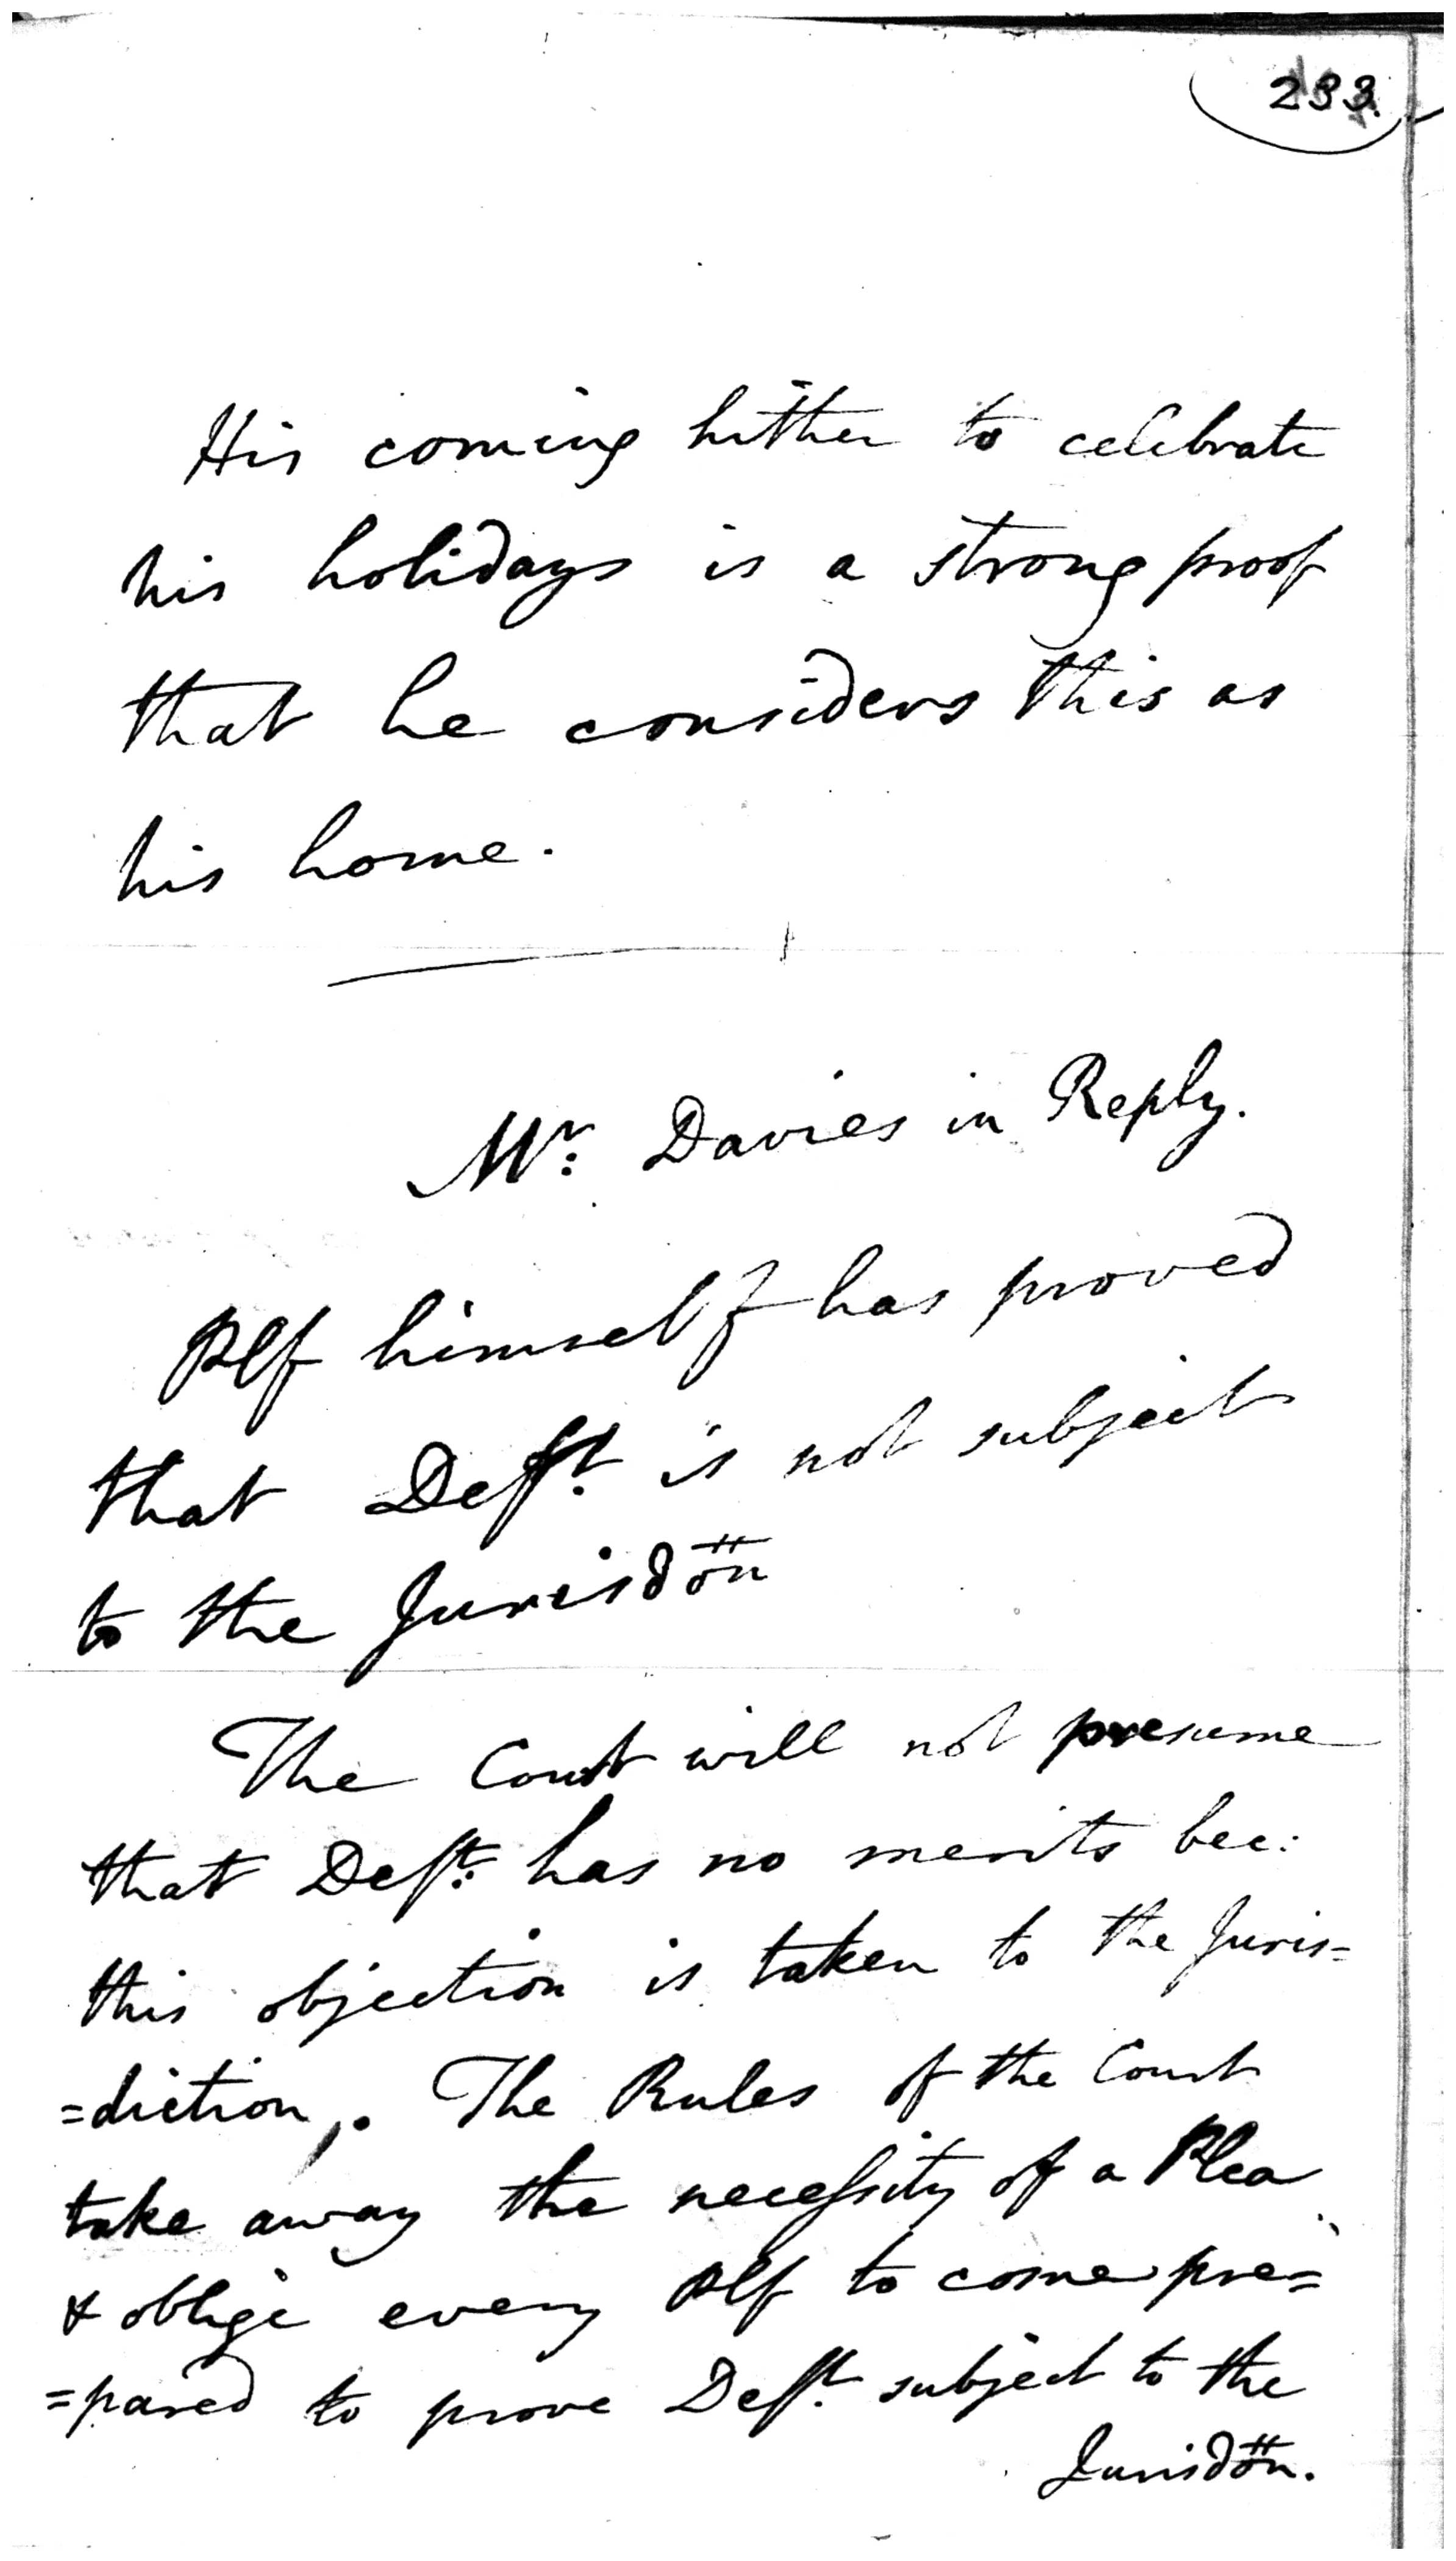 233.
His coming hither to celebrate
his holidays is a strong proof
that he considers this as
his home.
Mr: Davies in Reply.
Plf himself has proved
that Deft. is not subject
to the Jurisdon
The Court will not presume
that Deft: has no merits bec:
this objection is taken to the Juris=
=diction,. The Rules of the Court
take away the necessity of a Plea
& oblige every Plf to come pre=
=pared to prove Deft. subject to the
Jurisdon.